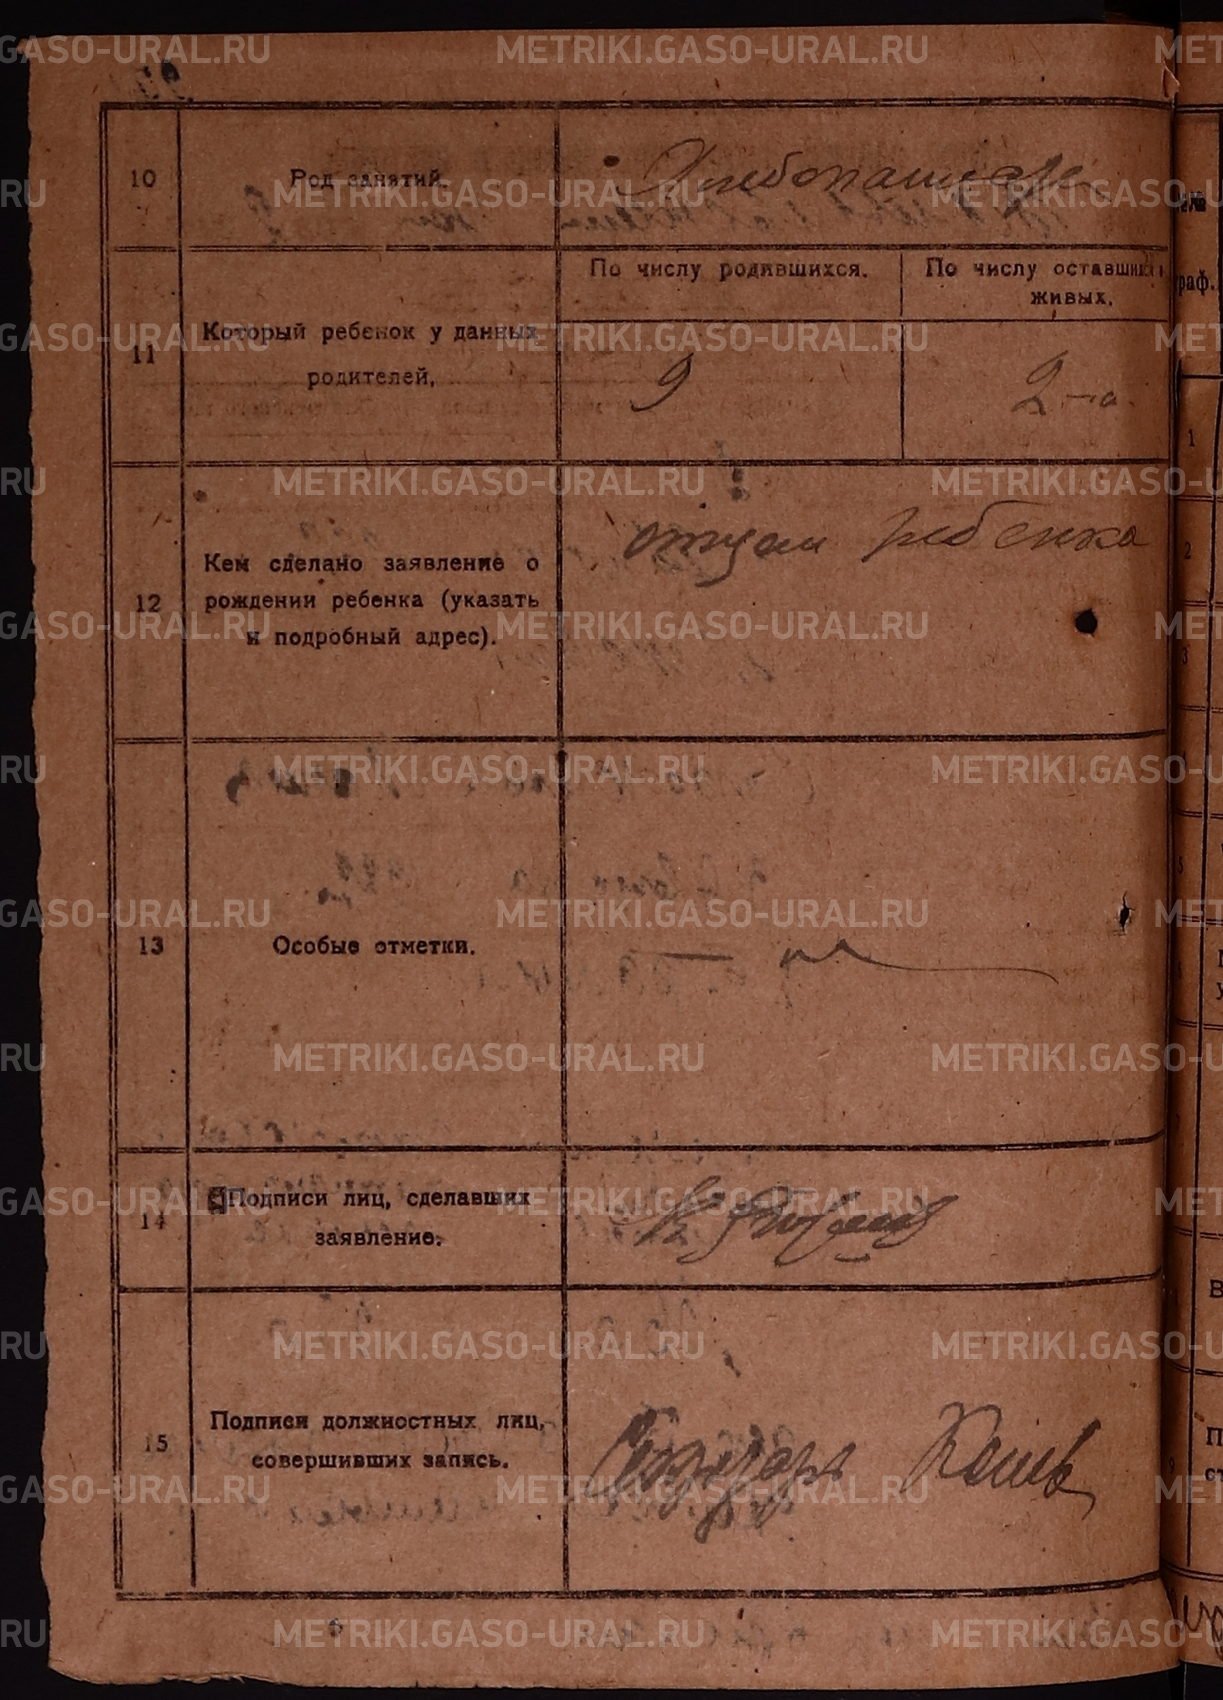 METRIKI.GASO-URAL.RU
10
Род занятий.
Хлебопашцы
11
Который ребенок у данных
родителей,
По числу родившихся.
По числу оставшихся в
живых.
9
2-й
12
Кем сделано заявление о
рождении ребенка (указать
и подробный адрес).
отцом ребенка
13
Особые отметки.
14
Подписи лиц, сделавших
заявление.
15
Подписи должностных лиц,
совершивших запись.
Секретарь
раф.
1
2
3
5
9